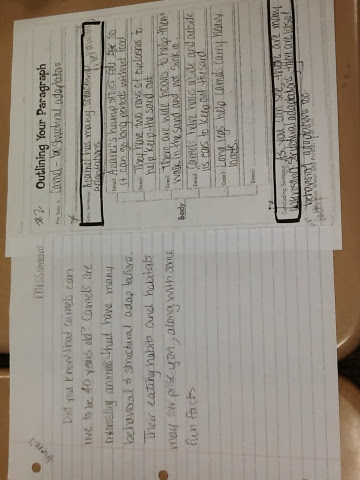 #2
Outlining Your Paragraph
Camel - structural adaptations
A camel has many structural
adaptations
Detail
A camel's hump stores fat for so
it can go long periods without food
Detail
They have two rows of eyelashes to
help keep the sand out
Detail
There are wide hooves to help them
walk in the sand and not sink in.
Detail
Camels have hairs inside and outside
its ears to keep out the sand
Detail
Long legs help camel carry heavy
loads.
Body
As you can see, there are many
interesting structural adaptations
behavioral adaptations too
Did you know that camels can
live to be 40 years old? Camels are
interesting animals that have many
behavioral & structural adaptations.
Their eating habits and habitats
may surprise you, along with some
fun facts.